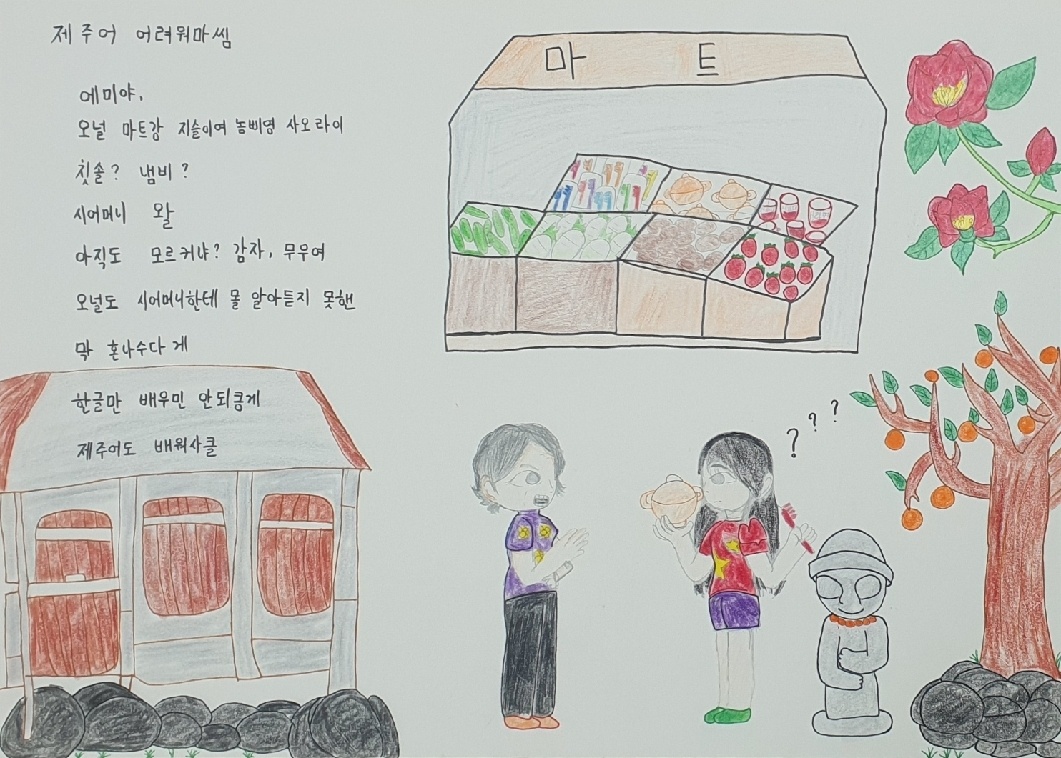 제주어 어려워마씸
에미야,
오널 마트강 지슬이여 놈삐영 사오라이
칫솔? 냄비?
시어머니 왈
아직도 모르커냐? 감자, 무우여
오널도 시어머니한테 몰 알아듣지 못핸
막 혼나수다게
한글만 배우민 안되쿰게
제주어도 배워사클
마트
? ? ?